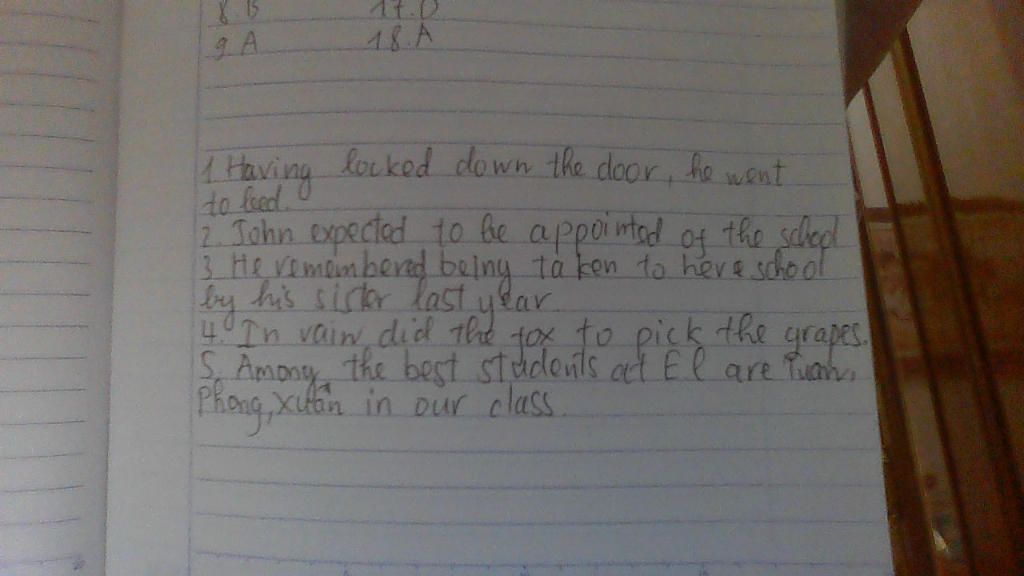 8. B 17. D
9. A 18. A
1. Having locked down the door, he went
to feed.
2. John expected to be appointed of the school
3. He remembered being taken to here school
by his sister last year.
4. In vain did the fox to pick the grapes.
5. Among the best students at El are Tuan,
Phong, Xuân in our class.